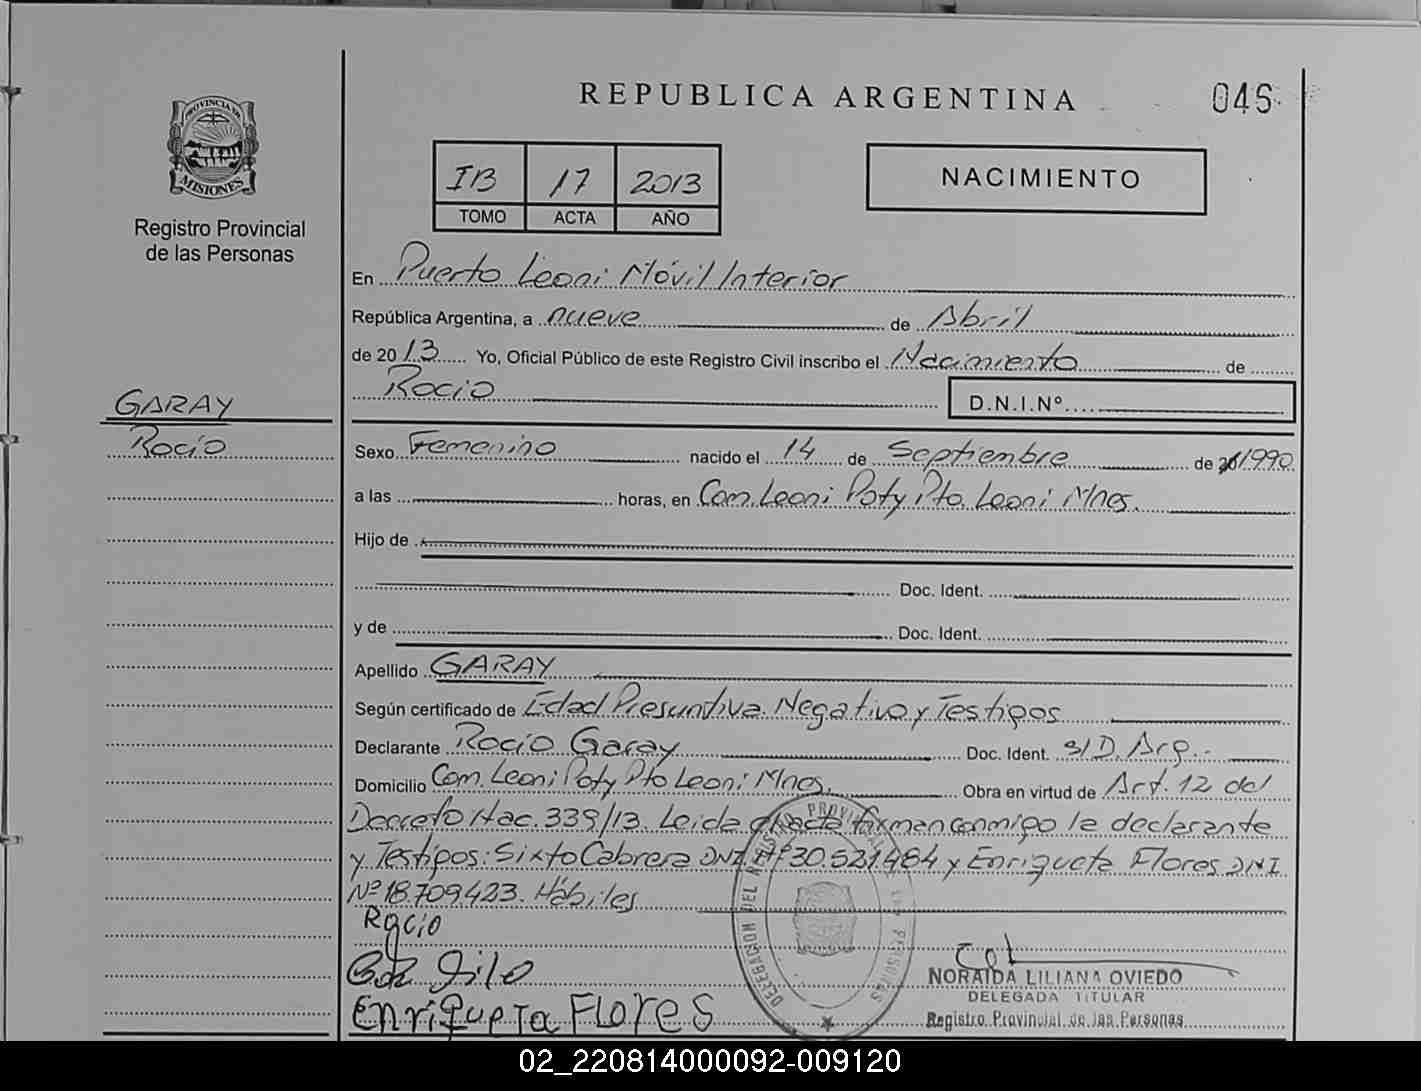 REPUBLICA ARGENTINA
046
PROVINCIA DE
MISIONES
Registro Provincial
de las Personas
IB 17 2013
TOMO ACTA AÑO
NACIMIENTO
En Puerto Leoni Móvil Interior
República Argentina, a nueve de Abril
de 2013 Yo, Oficial Público de este Registro Civil inscribo el Nacimiento de
Rocio
D.N.I.Nº
GARAY
Rocío
Sexo Femenino nacido el 14 de Septiembre de 1990
a las horas, en Com. Leoni Poty Pto. Leoni Mnes.
Hijo de
Doc. Ident.
y de Doc. Ident.
Apellido GARAY
Según certificado de Edad Presuntiva. Negativo y Testigos
Declarante Rocío Garay Doc. Ident. S/D. Arg.
Domicilio Com. Leoni Poty Pto Leoni Mnes. Obra en virtud de Art. 12 del
Decreto Nac. 339/13. Leída el acta firman conmigo la declarante
y Testigos: Sixto Cabrera DNI Nº 30.521.484 y Enriqueta Flores DNI
Nº 18.709.423. Hábiles
Rocío
Enriqueta FLORES
DELEGACION DEL REGISTRO PROVINCIAL DE LAS PERSONAS
NORAIDA LILIANA OVIEDO
DELEGADA TITULAR
Registro Provincial de las Personas
02_220814000092-009120